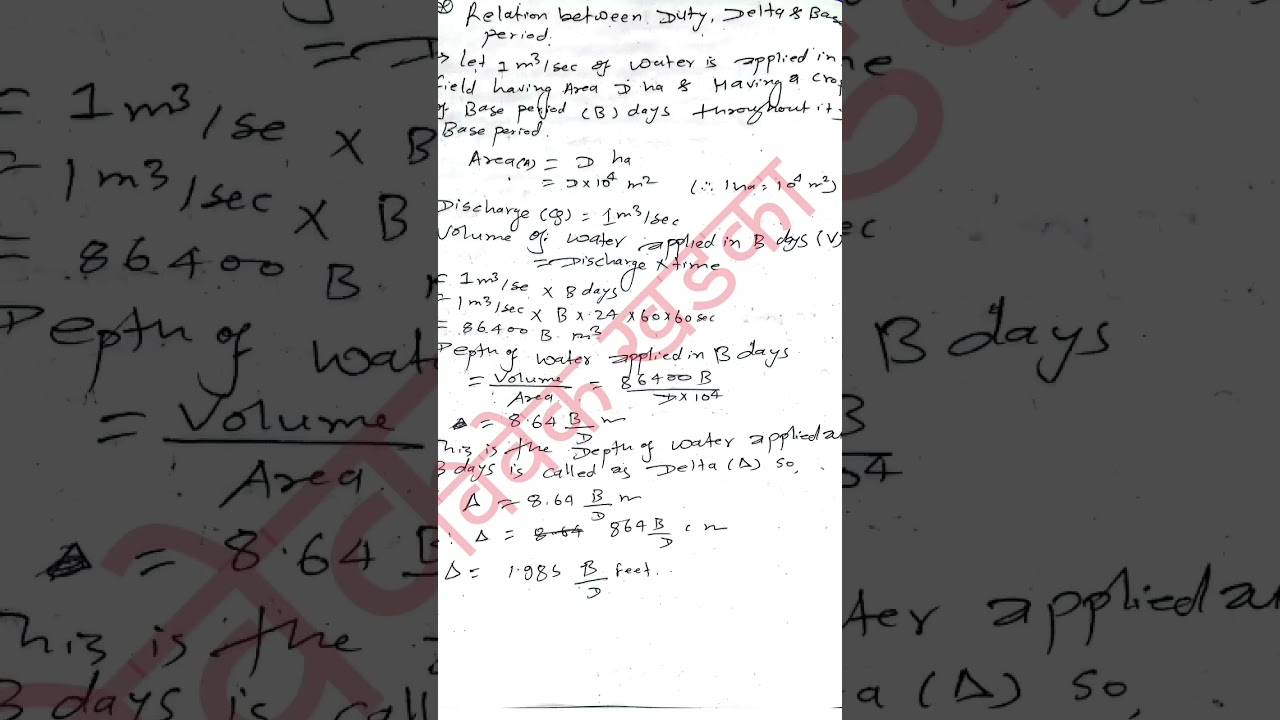 Relation between Duty, Delta & Base
period.
→ let 1 m³/sec of water is applied in
field having Area D ha & Having a crop
of Base period (B) days throughout it
Base period.
Area(A) = D ha
= D×10⁴ m² (∴ 1 ha = 10⁴ m²)
Discharge (Q) = 1 m³/sec
Volume of water applied in B days (V)
= Discharge × time
= 1 m³/se × B days
= 1 m³/sec × B × 24 × 60×60 sec
= 86400 B m³
Depth of water applied in B days
= Volume/Area = 86400 B/D×10⁴
Δ = 8.64 B/D m
This is the Depth of water applied
B days is called as Delta (Δ) so,
Δ = 8.64 B/D m
∴ Δ = 8.64 864 B/D cm
Δ = 1.985 B/D feet.
विवेक खड्का